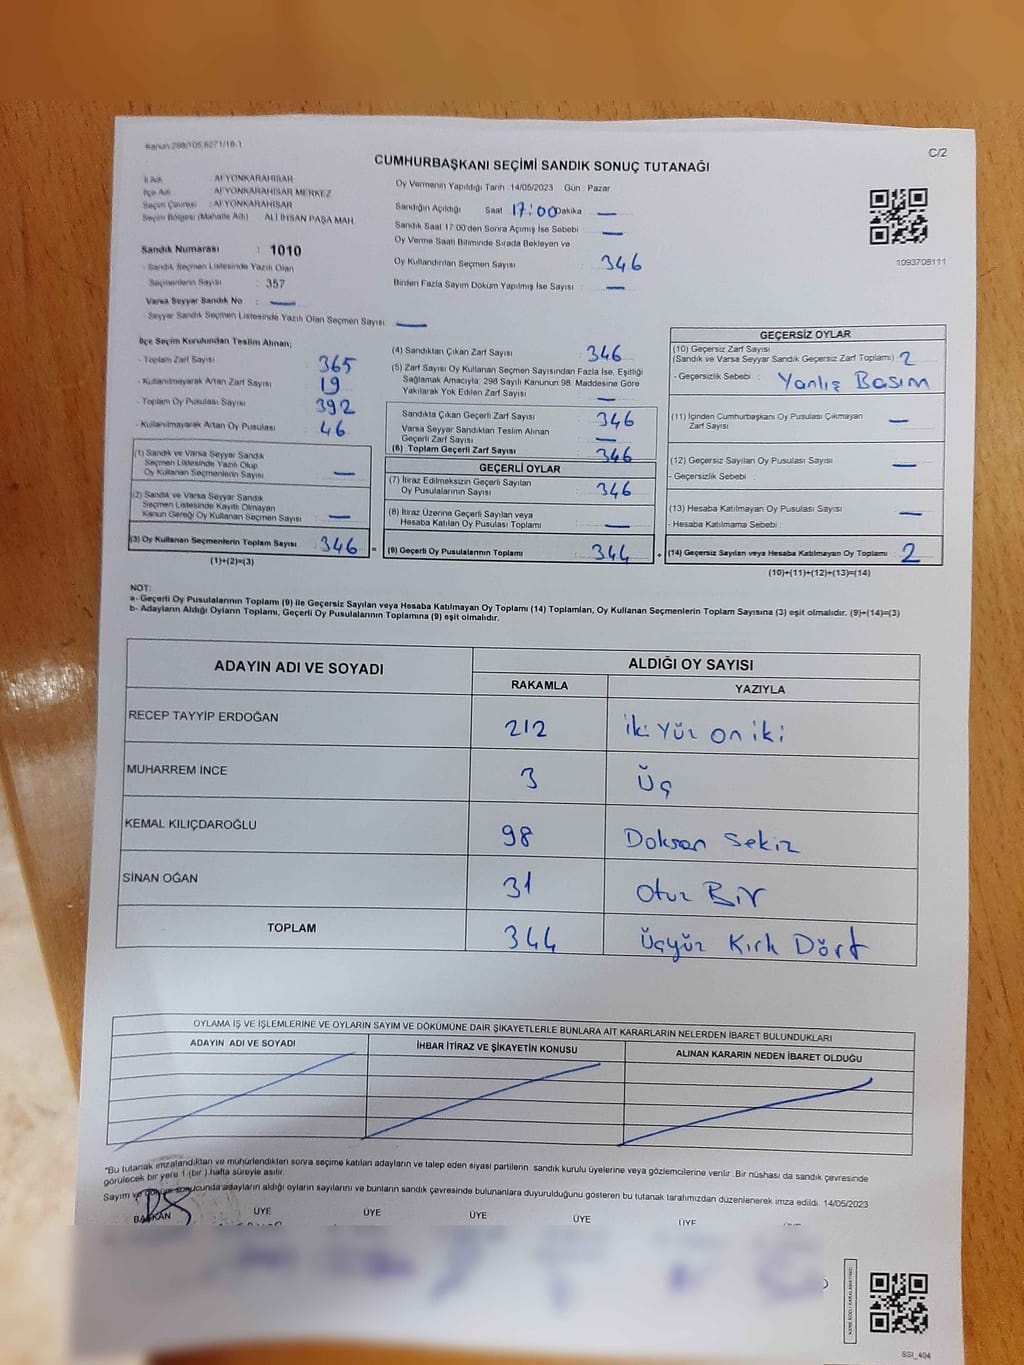 Kanun:298/105,6271/18-1
C/2
CUMHURBAŞKANI SEÇİMİ SANDIK SONUÇ TUTANAĞI
İl Adı : AFYONKARAHİSAR
İlçe Adı : AFYONKARAHİSAR MERKEZ
Seçim Çevresi : AFYONKARAHİSAR
Seçim Bölgesi (Mahalle Adı) : ALİ İHSAN PAŞA MAH.
Sandık Numarası : 1010
- Sandık Seçmen Listesinde Yazılı Olan
Seçmenlerin Sayısı : 357
Varsa Seyyar Sandık No : —
- Seyyar Sandık Seçmen Listesinde Yazılı Olan Seçmen Sayısı : —
Oy Vermenin Yapıldığı Tarih :14/05/2023 Gün : Pazar
Sandığın Açıldığı Saat 17:00 Dakika : —
Sandık Saat 17:00'den Sonra Açımış İse Sebebi : —
Oy Verme Saati Bitiminde Sırada Bekleyen ve
Oy Kullandırılan Seçmen Sayısı : 346
Birden Fazla Sayım Döküm Yapılmış İse Sayısı : —
1093708111
İlçe Seçim Kurulundan Teslim Alınan;
- Toplam Zarf Sayısı : 365
- Kullanılmayarak Artan Zarf Sayısı : 19
- Toplam Oy Pusulası Sayısı : 392
- Kullanılmayarak Artan Oy Pusulası : 46
(1) Sandık ve Varsa Seyyar Sandık
Seçmen Listesinde Yazılı Olup
Oy Kullanan Seçmenlerin Sayısı : —
(2) Sandık ve Varsa Seyyar Sandık
Seçmen Listesinde Kayıtlı Olmayan
Kanun Gereği Oy Kullanan Seçmen Sayısı : —
(3) Oy Kullanan Seçmenlerin Toplam Sayısı : 346
(1)+(2)=(3)
(4) Sandıktan Çıkan Zarf Sayısı : 346
(5) Zarf Sayısı Oy Kullanan Seçmen Sayısından Fazla İse, Eşitliği
Sağlamak Amacıyla, 298 Sayılı Kanunun 98. Maddesine Göre
Yakılarak Yok Edilen Zarf Sayısı : —
Sandıkta Çıkan Geçerli Zarf Sayısı : 346
Varsa Seyyar Sandıktan Teslim Alınan
Geçerli Zarf Sayısı : —
(6) Toplam Geçerli Zarf Sayısı : 346
GEÇERLİ OYLAR
(7) İtiraz Edilmeksizin Geçerli Sayılan
Oy Pusulalarının Sayısı : 346
(8) İtiraz Üzerine Geçerli Sayılan veya
Hesaba Katılan Oy Pusulası Toplamı : —
(9) Geçerli Oy Pusulalarının Toplamı : 344
GEÇERSİZ OYLAR
(10) Geçersiz Zarf Sayısı
(Sandık ve Varsa Seyyar Sandık Geçersiz Zarf Toplamı) : 2
- Geçersizlik Sebebi : Yanlış Basım
(11) İçinden Cumhurbaşkanı Oy Pusulası Çıkmayan
Zarf Sayısı : —
(12) Geçersiz Sayılan Oy Pusulası Sayısı : —
- Geçersizlik Sebebi :
(13) Hesaba Katılmayan Oy Pusulası Sayısı : —
- Hesaba Katılmama Sebebi :
(14) Geçersiz Sayılan veya Hesaba Katılmayan Oy Toplamı : 2
(10)+(11)+(12)+(13)=(14)
NOT:
a- Geçerli Oy Pusulasının Toplamı (9) ile Geçersiz Sayılan ve Hesaba Katılmayan Oy Toplamı (14) Toplamları, Oy Kullanan Seçmenlerin Toplam Sayısına (3) eşit olmalıdır. (9)+(14)=(3)
b- Adayların Aldığı Oyların Toplamı, Geçerli Oy Pusulalarının Toplamına (9) eşit olmalıdır.
ADAYIN ADI VE SOYADI
ALDIĞI OY SAYISI
RAKAMLA YAZIYLA
RECEP TAYYİP ERDOĞAN 212 iki Yüz on iki
MUHARREM İNCE 3 Üç
KEMAL KILIÇDAROĞLU 98 Doksan Sekiz
SİNAN OĞAN 31 Otuz Bir
TOPLAM 344 Üçyüz Kırk Dört
OYLAMA İŞ VE İŞLEMLERİNE VE OYLARIN SAYIM VE DÖKÜMÜNE DAİR ŞİKAYETLERLE BUNLARA AİT KARARLARIN NELERDEN İBARET BULUNDUKLARI
ADAYIN ADI VE SOYADI İHBAR İTİRAZ VE ŞİKAYETİN KONUSU ALINAN KARARIN NEDEN İBARET OLDUĞU
"Bu tutanak imzalandıktan ve mühürlendikten sonra seçime katılan adayların ve talep eden siyasi partilerin sandık kurulu üyelerine veya gözlemcilerine verilir. Bir nüshası da sandık çevresinde
görülecek bir yere 1 (bir) hafta süreyle asılır.
Sayım ve döküm sonucunda adayların aldığı oyların sayılarını ve bunların sandık çevresinde bulunanlara duyurulduğunu gösteren bu tutanak tarafımızdan düzenlenerek imza edildi. 14/05/2023
BAŞKAN ÜYE ÜYE ÜYE ÜYE ÜYE ÜYE